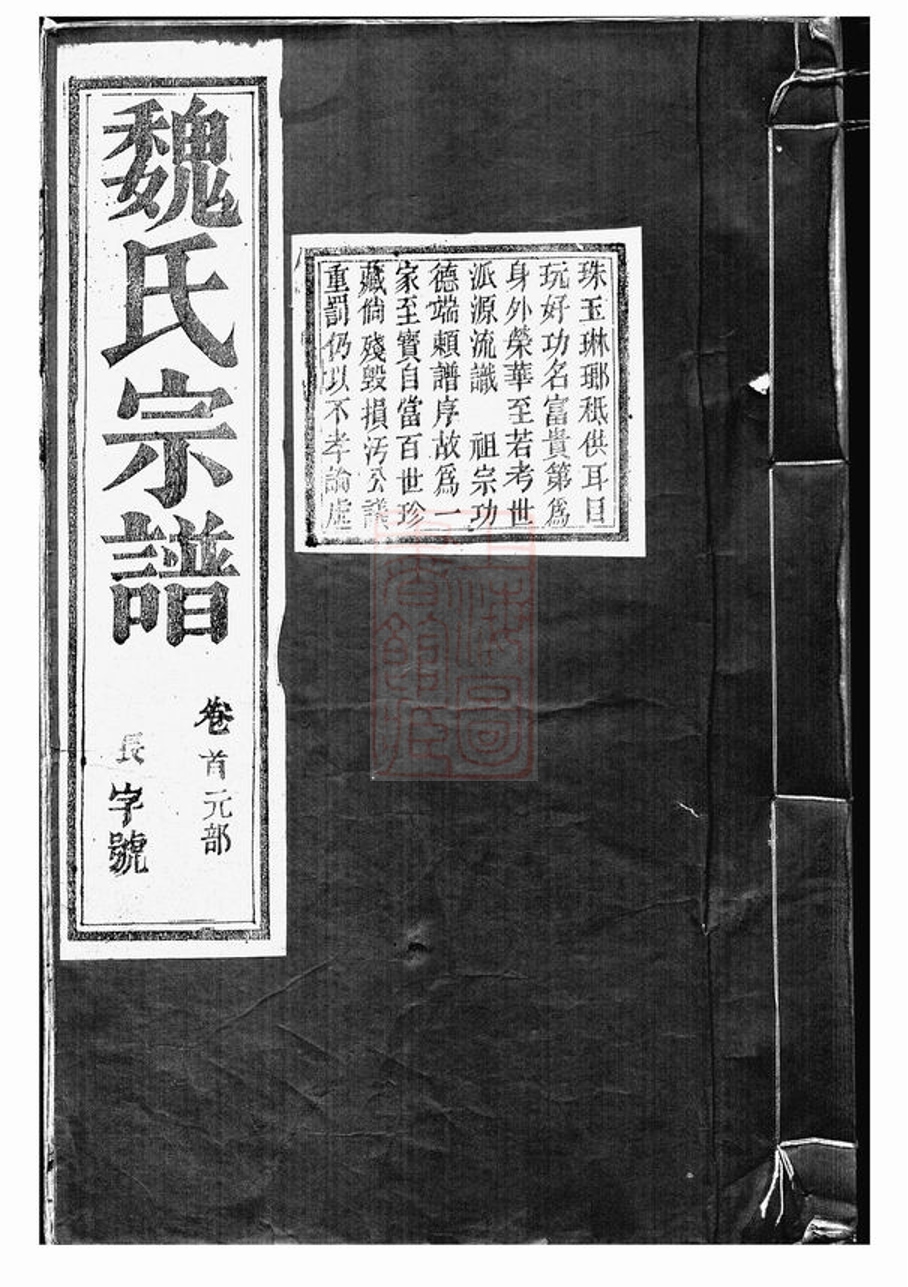 珠玉琳瑯秖供耳目
玩好功名富貴第為
身外榮華至若考世
派源流識　祖宗功
德端頼譜序故為一
家至寳自當百世珍
藏倘殘毀損汚公議
重罰仍以不孝論虗
魏氏宗譜
卷首元部
長字號
上海圖
書館藏